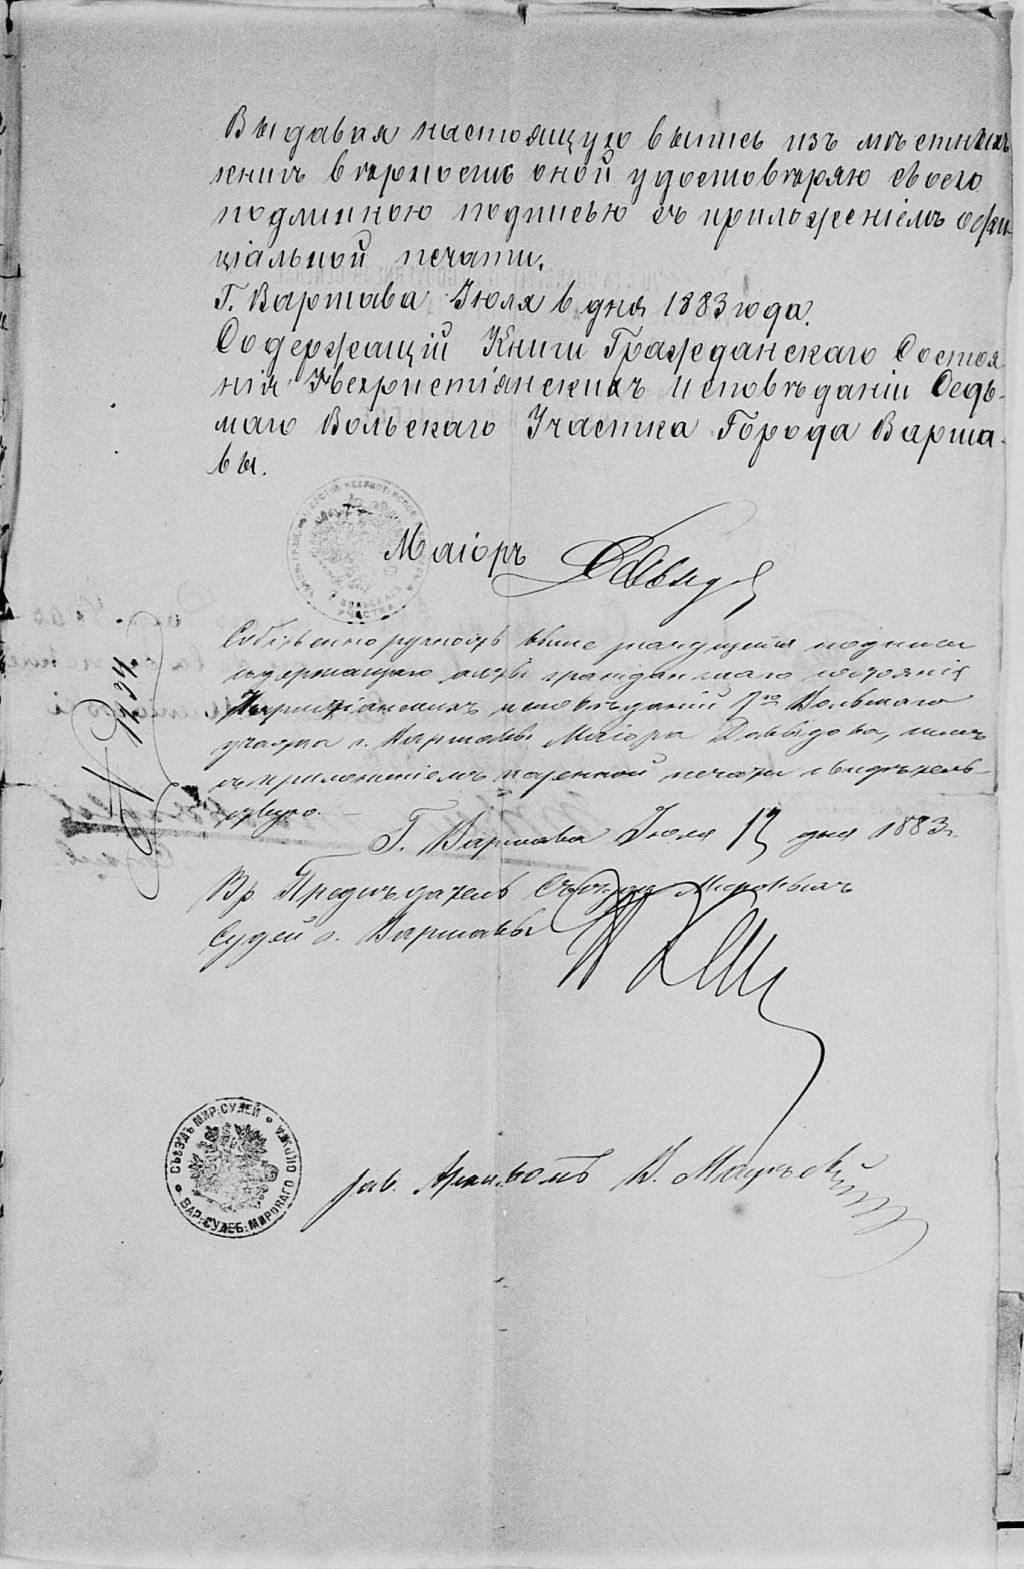 Выдавая настоящую выпись изъ мѣстныхъ
книгъ вѣрность оной удостовѣряю своею
подлинною подписью съ приложеніемъ оффи-
ціальной печати.
Г. Варшава Іюля 6 дня 1883 года.
Содержащій Книги Гражданскаго Состоя
нія Нехристіанскихъ Исповѣданій Седь-
маго Вольскаго Участка Города Варша-
вы.
Маіоръ Давыдов
Собственноручность выше находящейся подписи
содержащаго акты гражданскаго состоянія
Нехристіанскихъ исповѣданій 7го Вольскаго
участка г. Варшавы Маіора Давыдова, симъ
съ приложеніемъ казенной печати свидѣтель-
ствую.
Г. Варшава Іюля 13 дня 1883 г.
Вр. Предсѣдатель Съѣзда Мировыхъ
Судей г. Варшавы
№ 1234.
СЪѢЗДЪ МИР. СУДЕЙ
ВАР. СУДЕБ. МИРОВАГО ОКРУГА
Зав. Архивомъ